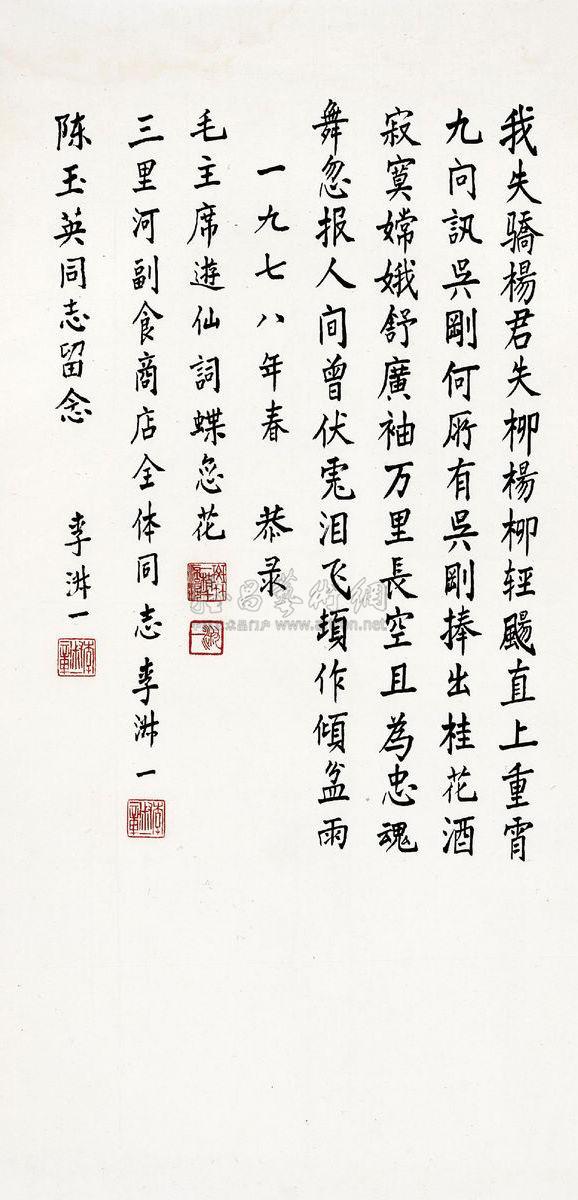 我失驕楊君失柳楊柳轻颺直上重霄
九问訊吳剛何所有吳剛捧出桂花酒
寂寞嫦娥舒廣袖万里長空且為忠魂
舞忽报人间曾伏虎泪飞頓作傾盆雨
一九七八年春 恭录
毛主席遊仙詞蝶恋花
三里河副食商店全体同志 李淑一
陈玉英同志留念 李淑一